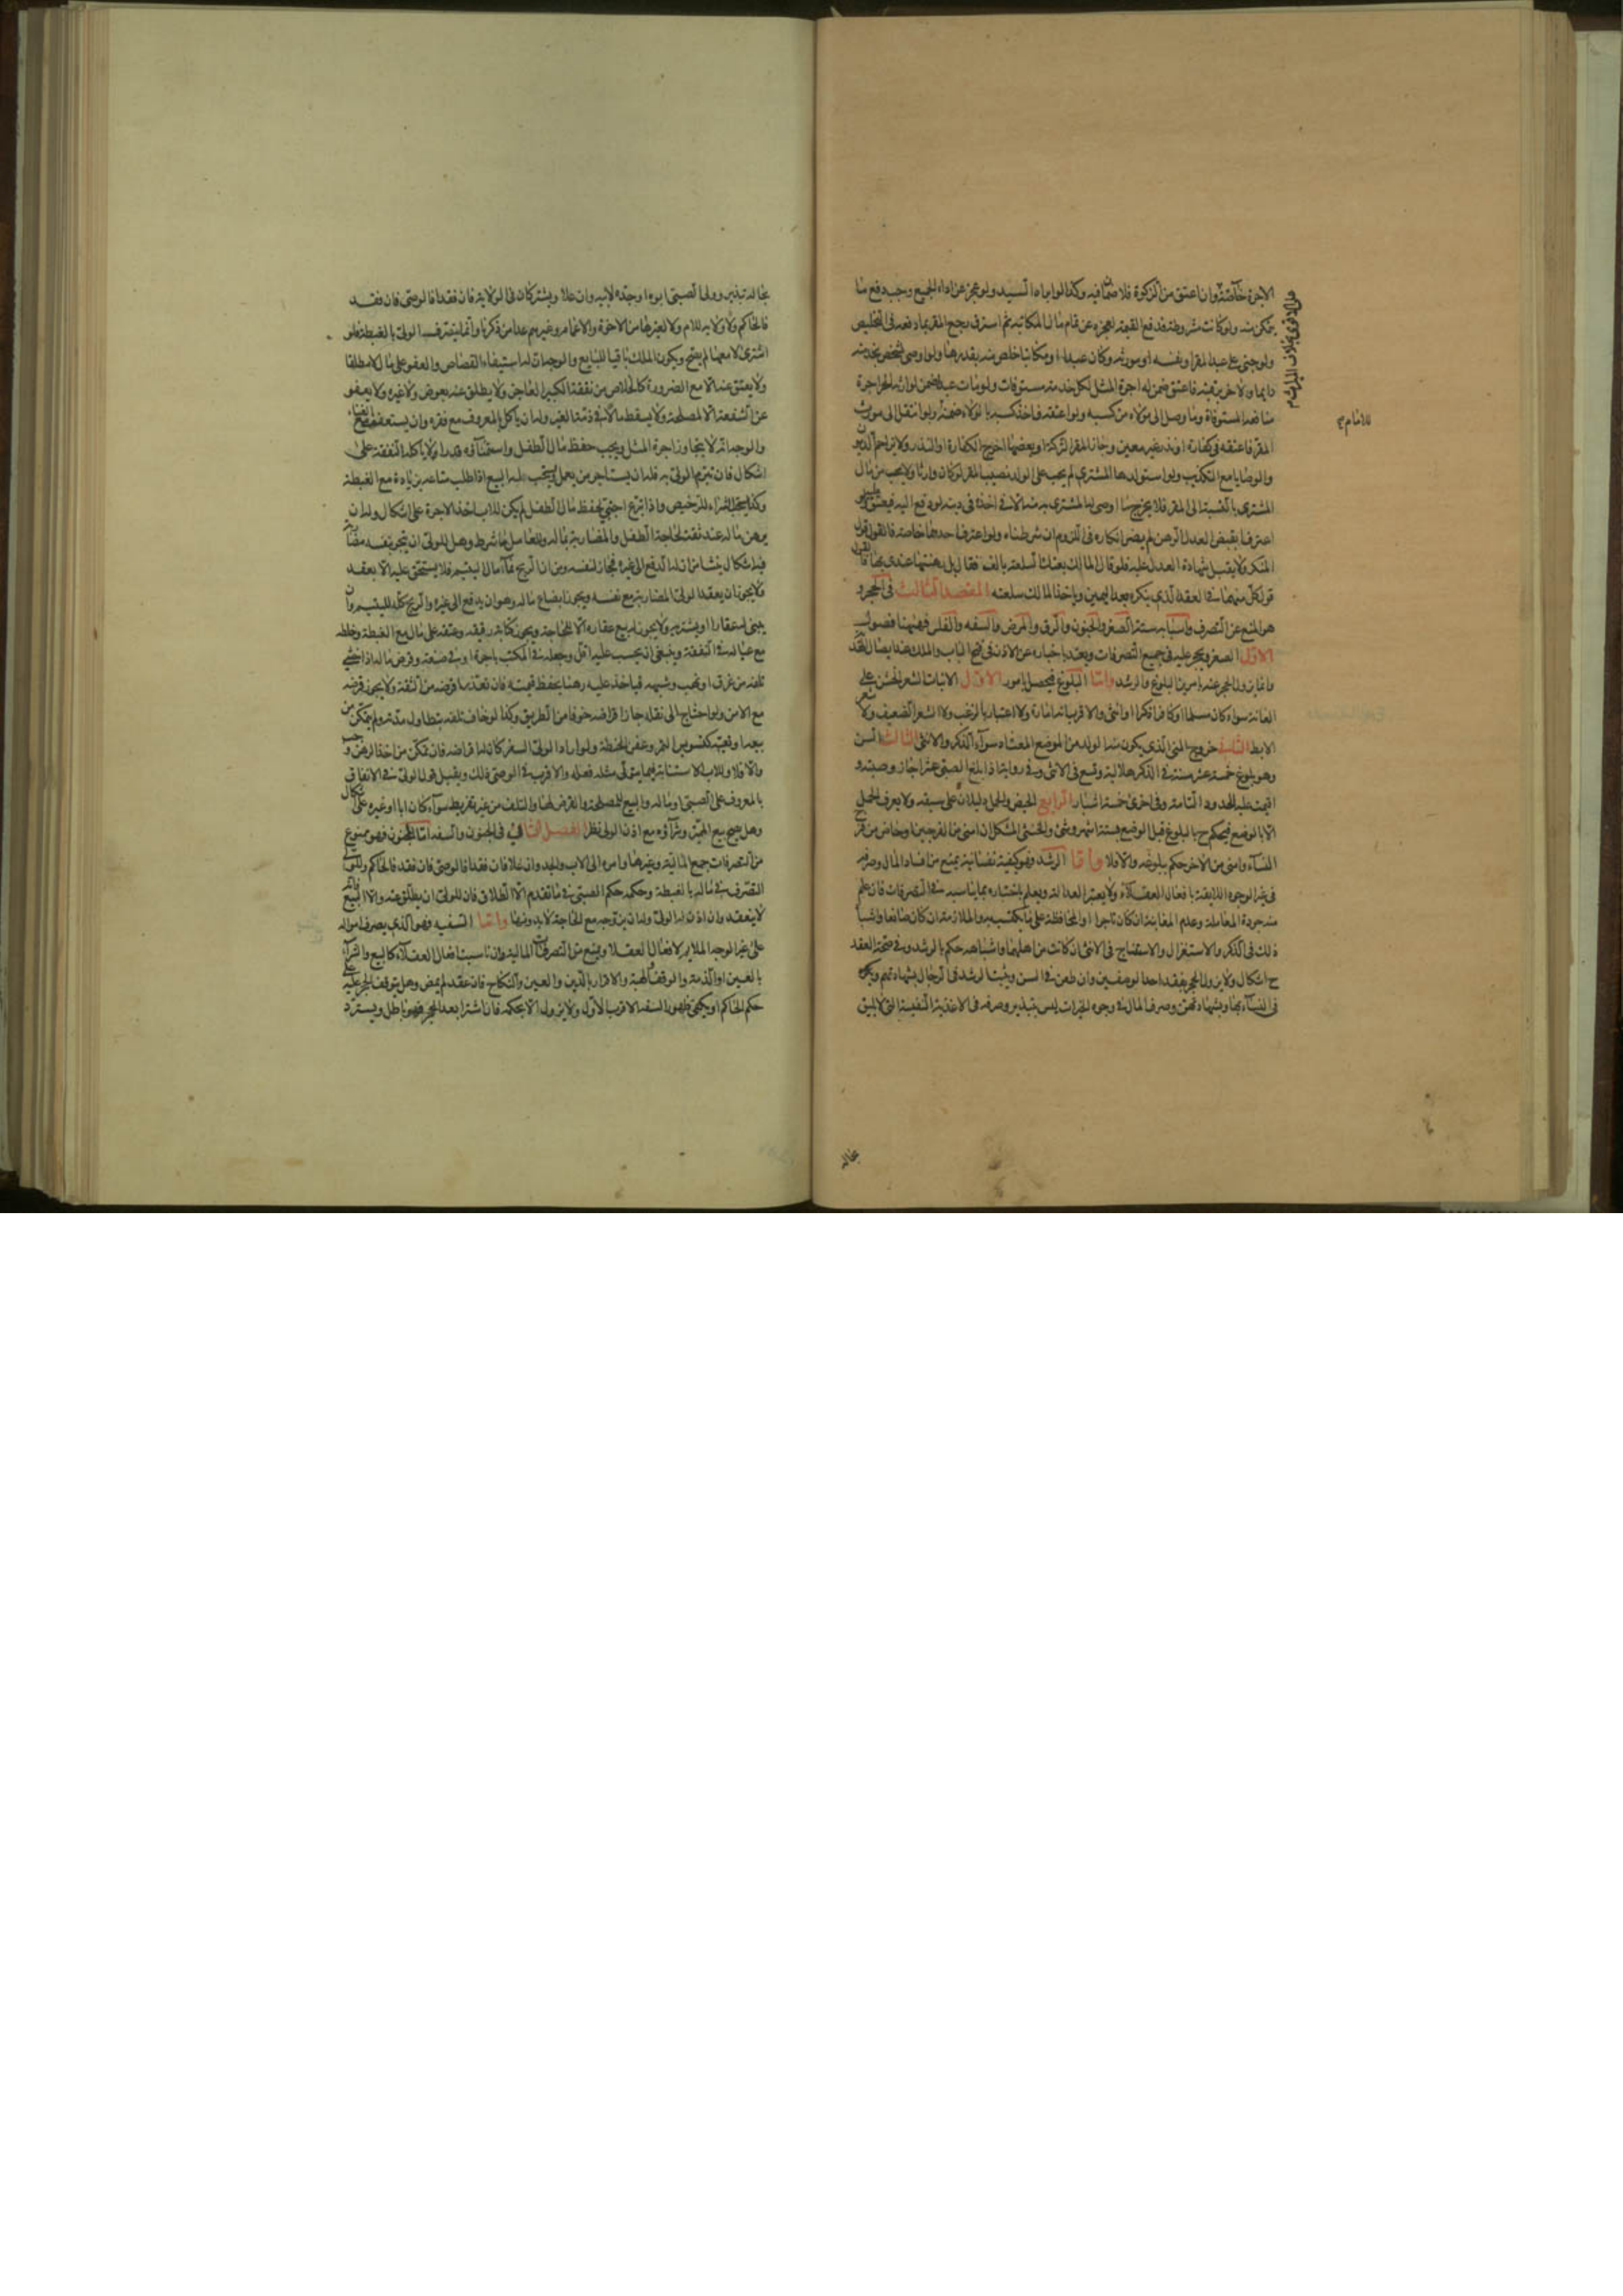 الاجرة خاصة وان اعتق من الزكوة فلا ضمان فيه وكذا لو اباه السيد ولو عجز عن اداء الجميع وجب دفع ما
يتمكن منه ولو كانت مشروطة فدفع القيمة لعجزه عن تمام مال المكاتبة ثم استرق رجع المقر بما دفعه في التخليص
ولو جنى على عبد المقر او نفسه او مورثه وكان عبدا او مكاتبا خلص منه بقدرها ولو اوصى لشخص بخدمته
دايما ولاخر برقبته فاعتق ضمن له اجرة المثل لكل خدمة مستوفاة ولو مات عبدا ضمن لوارثه الحر اجرة
منافعه المستوفاة وما وصل الى مولاه من كسبه ولو اعتقه فاخذ كسبه بالولاء ضمنه ولو انتقل الى مورث
المقر فاعتقه في كفارة او نذر غير معين وحاز المقر التركة او بعضها اخرج الكفارة او النذر ولا يزاحم الديون
والوصايا مع التكذيب ولو استولدها المشتري لم يجب على الولد نصيب المقر لو كان وارثا ولا يجب من مال
المشتري بالنسبة الى المقر فلا يخرج ما اوصى له المشتري به منه الا في اخذه في ديته لو دفع اليه فيعتق عليه ولو
اعترفا بقبض العدل الرهن لم يضر انكاره في اللزوم ان شرطناه ولو اعترف احدهما خاصة فالقول قول
المنكر ولا يقبل شهادة العدل عليه فلو قال المالك بعتك السلعة بالف فقال بل رهنتها عندي بها فالقول
قول كل منهما في العقد الذي ينكره بعد اليمين وياخذ المالك سلعته المقصد الثالث في الحجر و
هو المنع عن التصرف واسبابه ستة الصغر والجنون والرق والمرض والسفه والفلس فهنا فصول
الاول الصغر ويحجر عليه في جميع التصرفات ويعتد باخباره عن الاذن في فتح الباب والملك عند ايصال الهدية
وانما يزول الحجر عنه بامرين البلوغ والرشد واما البلوغ فيحصل بامور الاول الانبات للشعر الخشن على
العانة سواء كان مسلما او كافرا ذكرا او انثى والاقرب انه امارة ولا اعتبار بالزغب ولا الشعر الضعيف ولا شعر
الابط الثاني خروج المني الذي يكون منه الولد من الموضع المعتاد سواء الذكر والانثى الثالث السن
وهو بلوغ خمسة عشر سنة في الذكر هلالية وتسع في الانثى وفي رواية اذا بلغ الصبي عشرا جاز وصيته و
اقيمت عليه الحدود التامة وفي اخرى خمسة اشبار الرابع الحيض والحمل دليلان على سبقه ولا يعرف الحمل
الا بالوضع فيحكم ح بالبلوغ قبل الوضع بستة اشهر وشئ والخنثى المشكل ان امنى من الفرجين او حاض من فرج
النساء وامنى من الاخر حكم ببلوغه والا فلا واما الرشد فهو كيفية نفسانية يمنع من افساد المال وصرفه
في غير الوجوه اللايقة بافعال العقلاء ولا يعتبر العدالة ويعلم باختباره بما يناسبه في التصرفات فان علم
منه جودة المعاملة وعدم المغابنة ان كان تاجرا او المحافظة على ما يكتسب به والملازمة ان كان صانعا واشباه
ذلك في الذكر والاستغزال والاستنتاج في الانثى ان كانت من اهلهما واشباهه حكم بالرشد وفي صحة العقد
ح اشكال ولا يزول الحجر بفقد احد الوصفين وان طعن في السن ويثبت الرشد في الرجال بشهادتهم وبه
في النساء بها وبشهادتهن وصرف المال في وجوه الخيرات ليس بتبذير وصرفه في الاغذية النفيسة التي لا يليق
بحاله
بحاله تبذير وولى الصبي ابوه او جده لابيه وان علا ويشتركان في الولاية فان فقدا فالوصي فان فقد
فالحاكم ولا ولاية للام ولا لغيرها من الاخوة والاعمام وغيرهم عدا من ذكرنا وانما يتصرف الولي بالغبطة فلو
اشترى لا معها لم يصح ويكون الملك باقيا للبايع والوجه ان له استيفاء القصاص والعفو على مال لا مطلقا
ولا يعتق عنه الا مع الضرورة كالخلاص من نفقة الكبير العاجز ولا يطلق عنه بعوض ولا غيره ولا يعفو
عن الشفعة الا لمصلحة ولا يسقط مالا في ذمة الغير وله ان ياكل بالمعروف مع فقره وان يستعفف مع الغناء
والوجه انه لا يتجاوز اجرة المثل ويجب حفظ مال الطفل واستنماؤه قدرا لا ياكله النفقة على
اشكال فان تبرم الولي به فله ان يستاجر من يعمل ويستحب له البيع اذا طلب متاعه بزيادة مع الغبطة
وكذا يستحب الشراء للترخيص واذا تبرع اجنبي بحفظ مال الطفل لم يكن للاب اخذ الاجرة على اشكال وله ان
يرهن ماله عند ثقة لحاجة الطفل والمضاربة بماله وللعامل ما شرط وهل للولي ان يتجر بنفسه مضاربة
فيه اشكال ينشا من ان له الدفع الى غيره فجاز لنفسه ومن ان الربح نماء مال اليتيم فلا يستحق عليه الا بعقد
ولا يجوز ان يعقد الولي المضاربة مع نفسه ويجوز ابضاع ماله وهو ان يدفع الى غيره والربح كله لليتيم وان
يبني له عقارا او يشتريه ولا يجوز له بيع عقاره الا للحاجة ويجوز كتابة رقيقه وعتقه على مال مع الغبطة وخلطه
مع عياله في النفقة وينبغي ان يحسب عليه اقل وجعله في المكتب باجرة او في صنعة وقرض ماله اذا خشي
تلفه من غرق او نهب وشبهه فياخذ عليه رهنا يحفظ قيمته فان تعذر ما قرضه من الثقة ولا يجوز قرضه
مع الامن ولو احتاج الى نقله جاز اقراضه خوفا من الطريق وكذا لو خاف تلفه بتطاول مدته ولم يتمكن من
بيعه او تعيبه كتسويس التمر وعفن الحنطة ولو اراد الولي السفر كان له اقراضه فان تمكن من اخذ الرهن وجب
والا فلا وللاب الاستنابة فيما يتولى مثله فعله والاقرب في الوصي ذلك ويقبل قول الولي في الانفاق
بالمعروف على الصبي او ماله والبيع للمصلحة والقرض لها والتلف من غير تفريط سواء كان ابا او غيره على اشكال
وهل يصح بيع المميز وشراؤه مع اذن الولي نظر الفصل الثاني في الجنون والسفه اما المجنون فهو ممنوع
من التصرفات جمع المالية وغيرها وامره الى الاب والجد وان علا فان فقدا فالوصي فان فقد فالحاكم وللولي
التصرف في ماله بالغبطة وحكمه حكم الصبي في ما تقدم الا الطلاق فان للولي ان يطلق عنه والا البيع فانه
لا ينعقد وان اذن له الولي وله ان يزوجه مع الحاجة لا بدونها واما السفيه فهو الذي يصرف امواله
على غير الوجه الملايم لافعال العقلاء ويمنع من التصرفات المالية وان ناسبت افعال العقلاء كالبيع والشراء
بالعين او الذمة والوقف والهبة والاقرار بالدين والعين والنكاح فان عقد لم يمض وهل يتوقف الحجر عليه على
حكم الحاكم او يكفي ظهور السفه الاقرب الاول ولا يزول الا بحكمه فان اشترا بعد الحجر فهو باطل ويسترد